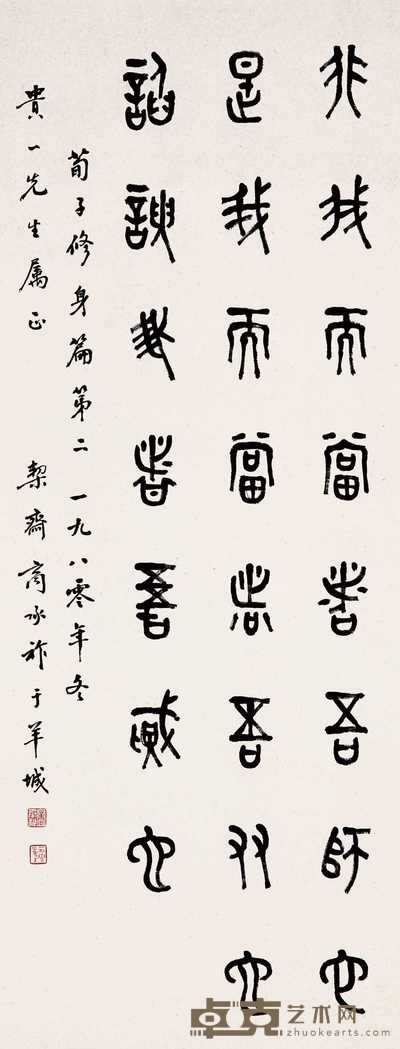 非我而當者吾師也
是我而當者吾友也
諂諛我者吾賊也
荀子修身篇第二 一九八零年冬
貴一先生属正 契齋商承祚于羊城
卓克艺术网
zhuokearts.com